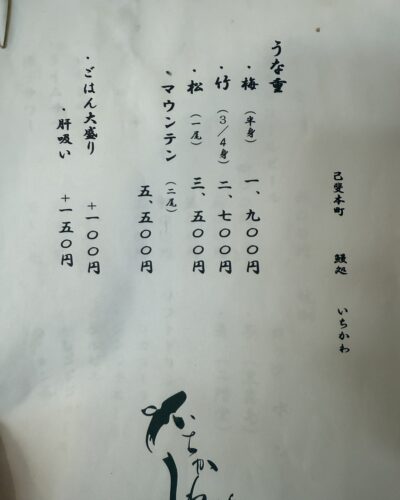 己斐本町　鰻処　いちかわ
うな重
・梅（半身）一、九〇〇円
・竹（３／４身）二、七〇〇円
・松（一尾）三、五〇〇円
・マウンテン（二尾）
五、五〇〇円
・ごはん大盛り　＋一〇〇円
・肝吸い　＋一五〇円
いちかわ